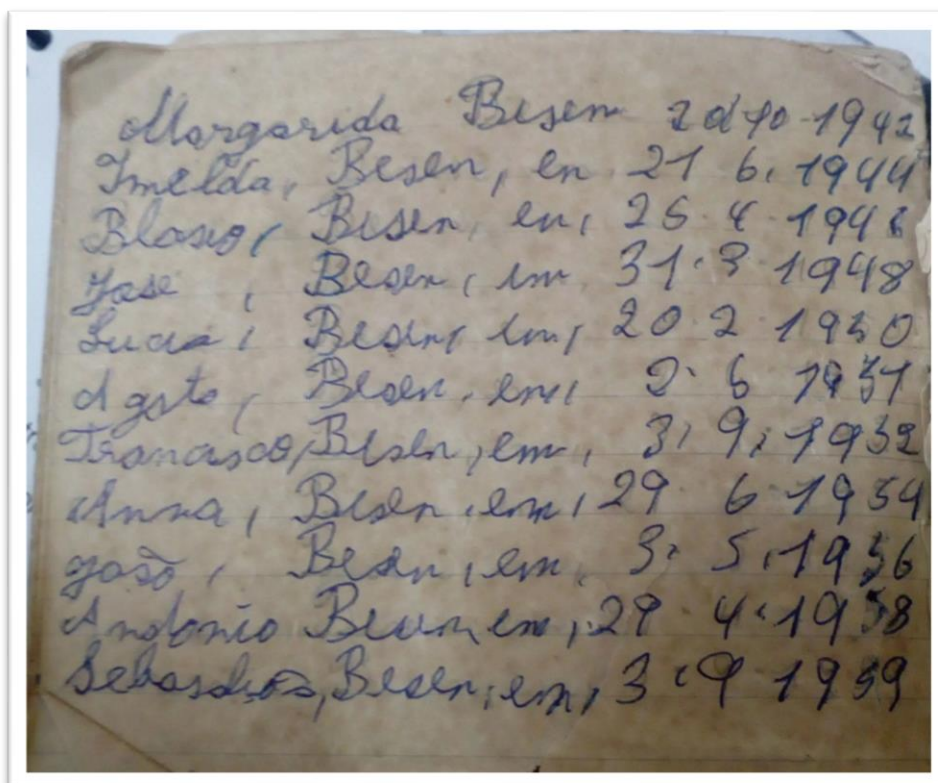 Margarida Besen 2 d 10 1942
Imelda, Besen, en 21 6, 1944
Blasio, Besen, en, 26 4 1946
Jose, Besen, em 31.3 1948
Lucia, Besen, em, 20 2 1950
Agsto, Besen, em, 2. 6 1951
Francisco, Besen, em, 3, 9, 1952
Anna, Besen, em, 29 6 1954
João, Besen, em, 3. 5. 1956
Andonio Besen, em, 29 4. 1958
Sebasdião, Besen, em, 3.9 1959